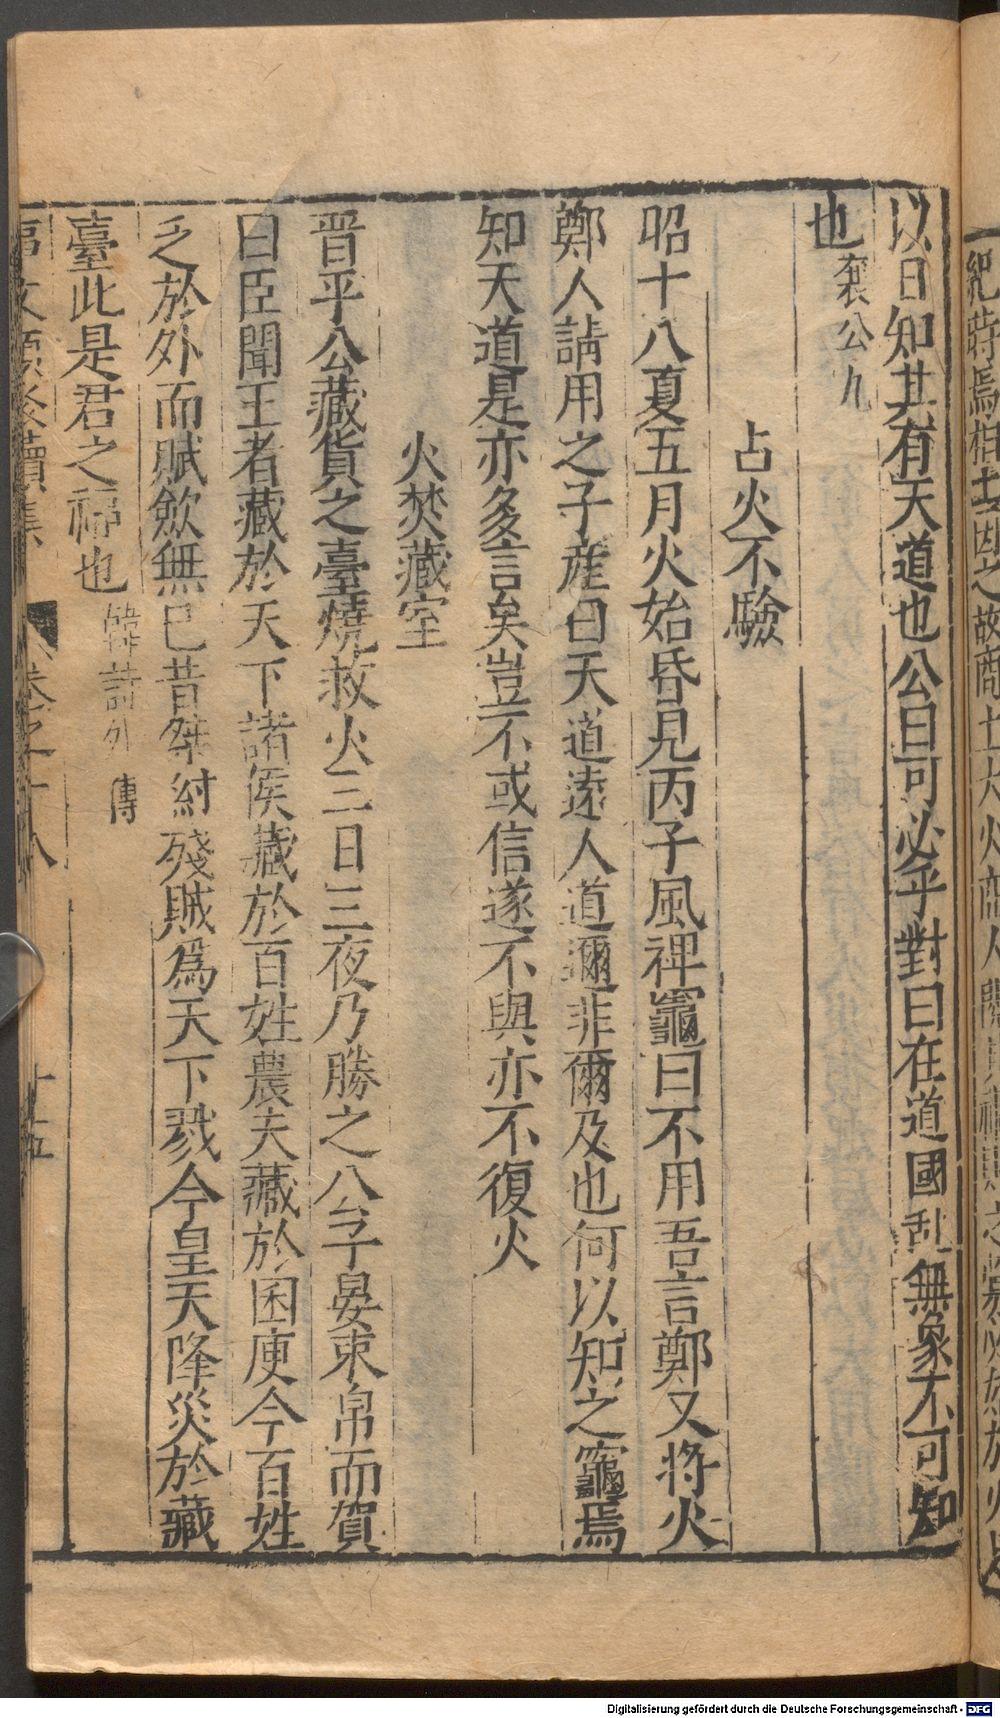 紀時焉相土因之故商主大火商人閱其禍敗之釁必始於火
以日知其有天道也公曰可必乎對曰在道國乱無象不可知
也襄公九
占火不驗
昭十八夏五月火始昏見丙子風裨竈曰不用吾言鄭又將火
鄭人請用之子產曰天道遠人道邇非爾及也何以知之竈焉
知天道是亦多言矣豈不或信遂不與亦不復火
火焚藏室
晋平公藏貨之臺燒救火三日三夜乃勝之公子晏束帛而賀
曰臣聞王者藏於天下諸侯藏於百姓農夫藏於囷庾今百姓
乏於外而賦斂無已昔桀紂殘賊爲天下戮今皇天降災於藏
臺此是君之福也韓詩外傳
事文類聚續集 卷之十八 十五
Digitalisierung gefördert durch die Deutsche Forschungsgemeinschaft - DFG